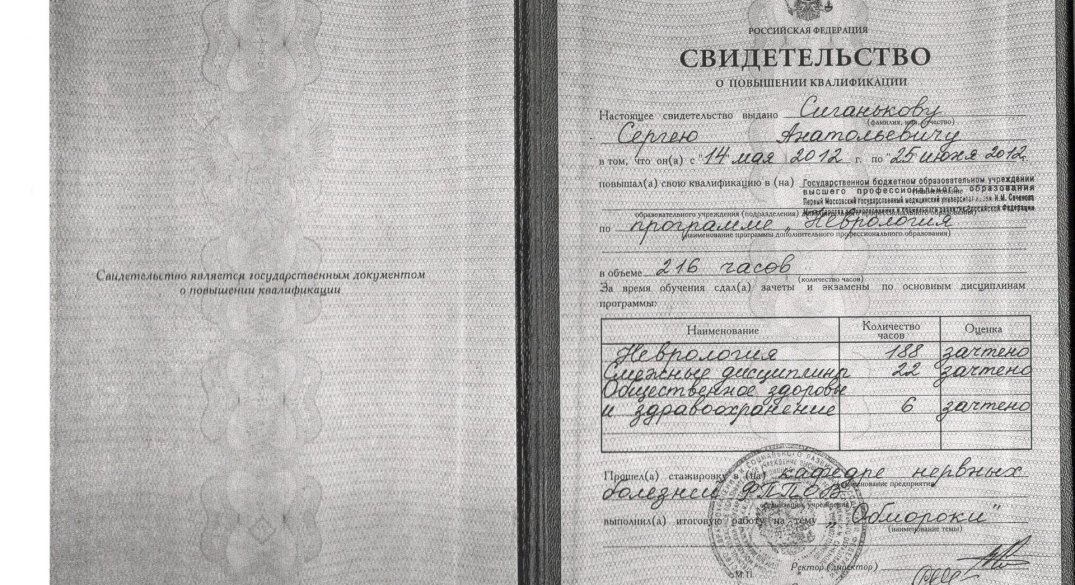 Свидетельство является государственным документом
о повышении квалификации
РОССИЙСКАЯ ФЕДЕРАЦИЯ
СВИДЕТЕЛЬСТВО
О ПОВЫШЕНИИ КВАЛИФИКАЦИИ
Настоящее свидетельство выдано Сиганькову
(фамилия, имя, отчество)
Сергею Анатольевичу
в том, что он(а) с "14 мая 2012 г. по "25 июня 2012
повышал(а) свою квалификацию в (на) Государственном бюджетном образовательном учреждении
высшего профессионального образования
Первый Московский государственный медицинский университет имени И.М. Сеченова
образовательного учреждения (подразделения)
по программе "Неврология
(наименование программы дополнительного профессионального образования)
в объеме 216 часов
(количество часов)
За время обучения сдал(а) зачеты и экзамены по основным дисциплинам
программы:
Наименование Количество часов Оценка
Неврология 188 зачтено
Смежные дисциплины 22 зачтено
Общественное здоровье
и здравоохранение 6 зачтено
Прошел(а) стажировку в (на) кафедре нервных
болезней ФППОВ
выполнил(а) итоговую работу на тему „Обмороки"
(наименование темы)
Ректор (директор)
М.П.